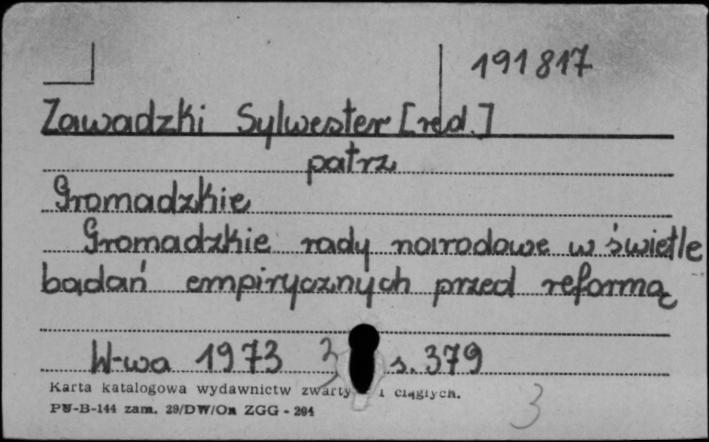 191817
Zawadzki Sylwester [red.]
patrz
Gromadzkie
Gromadzkie rady narodowe w świetle
badań empirycznych przed reformą
W-wa 1973 s. 379
Karta katalogowa wydawnictw i ciągłych.
PU-B-144 zam. 29/DW/On ZGG - 204
3